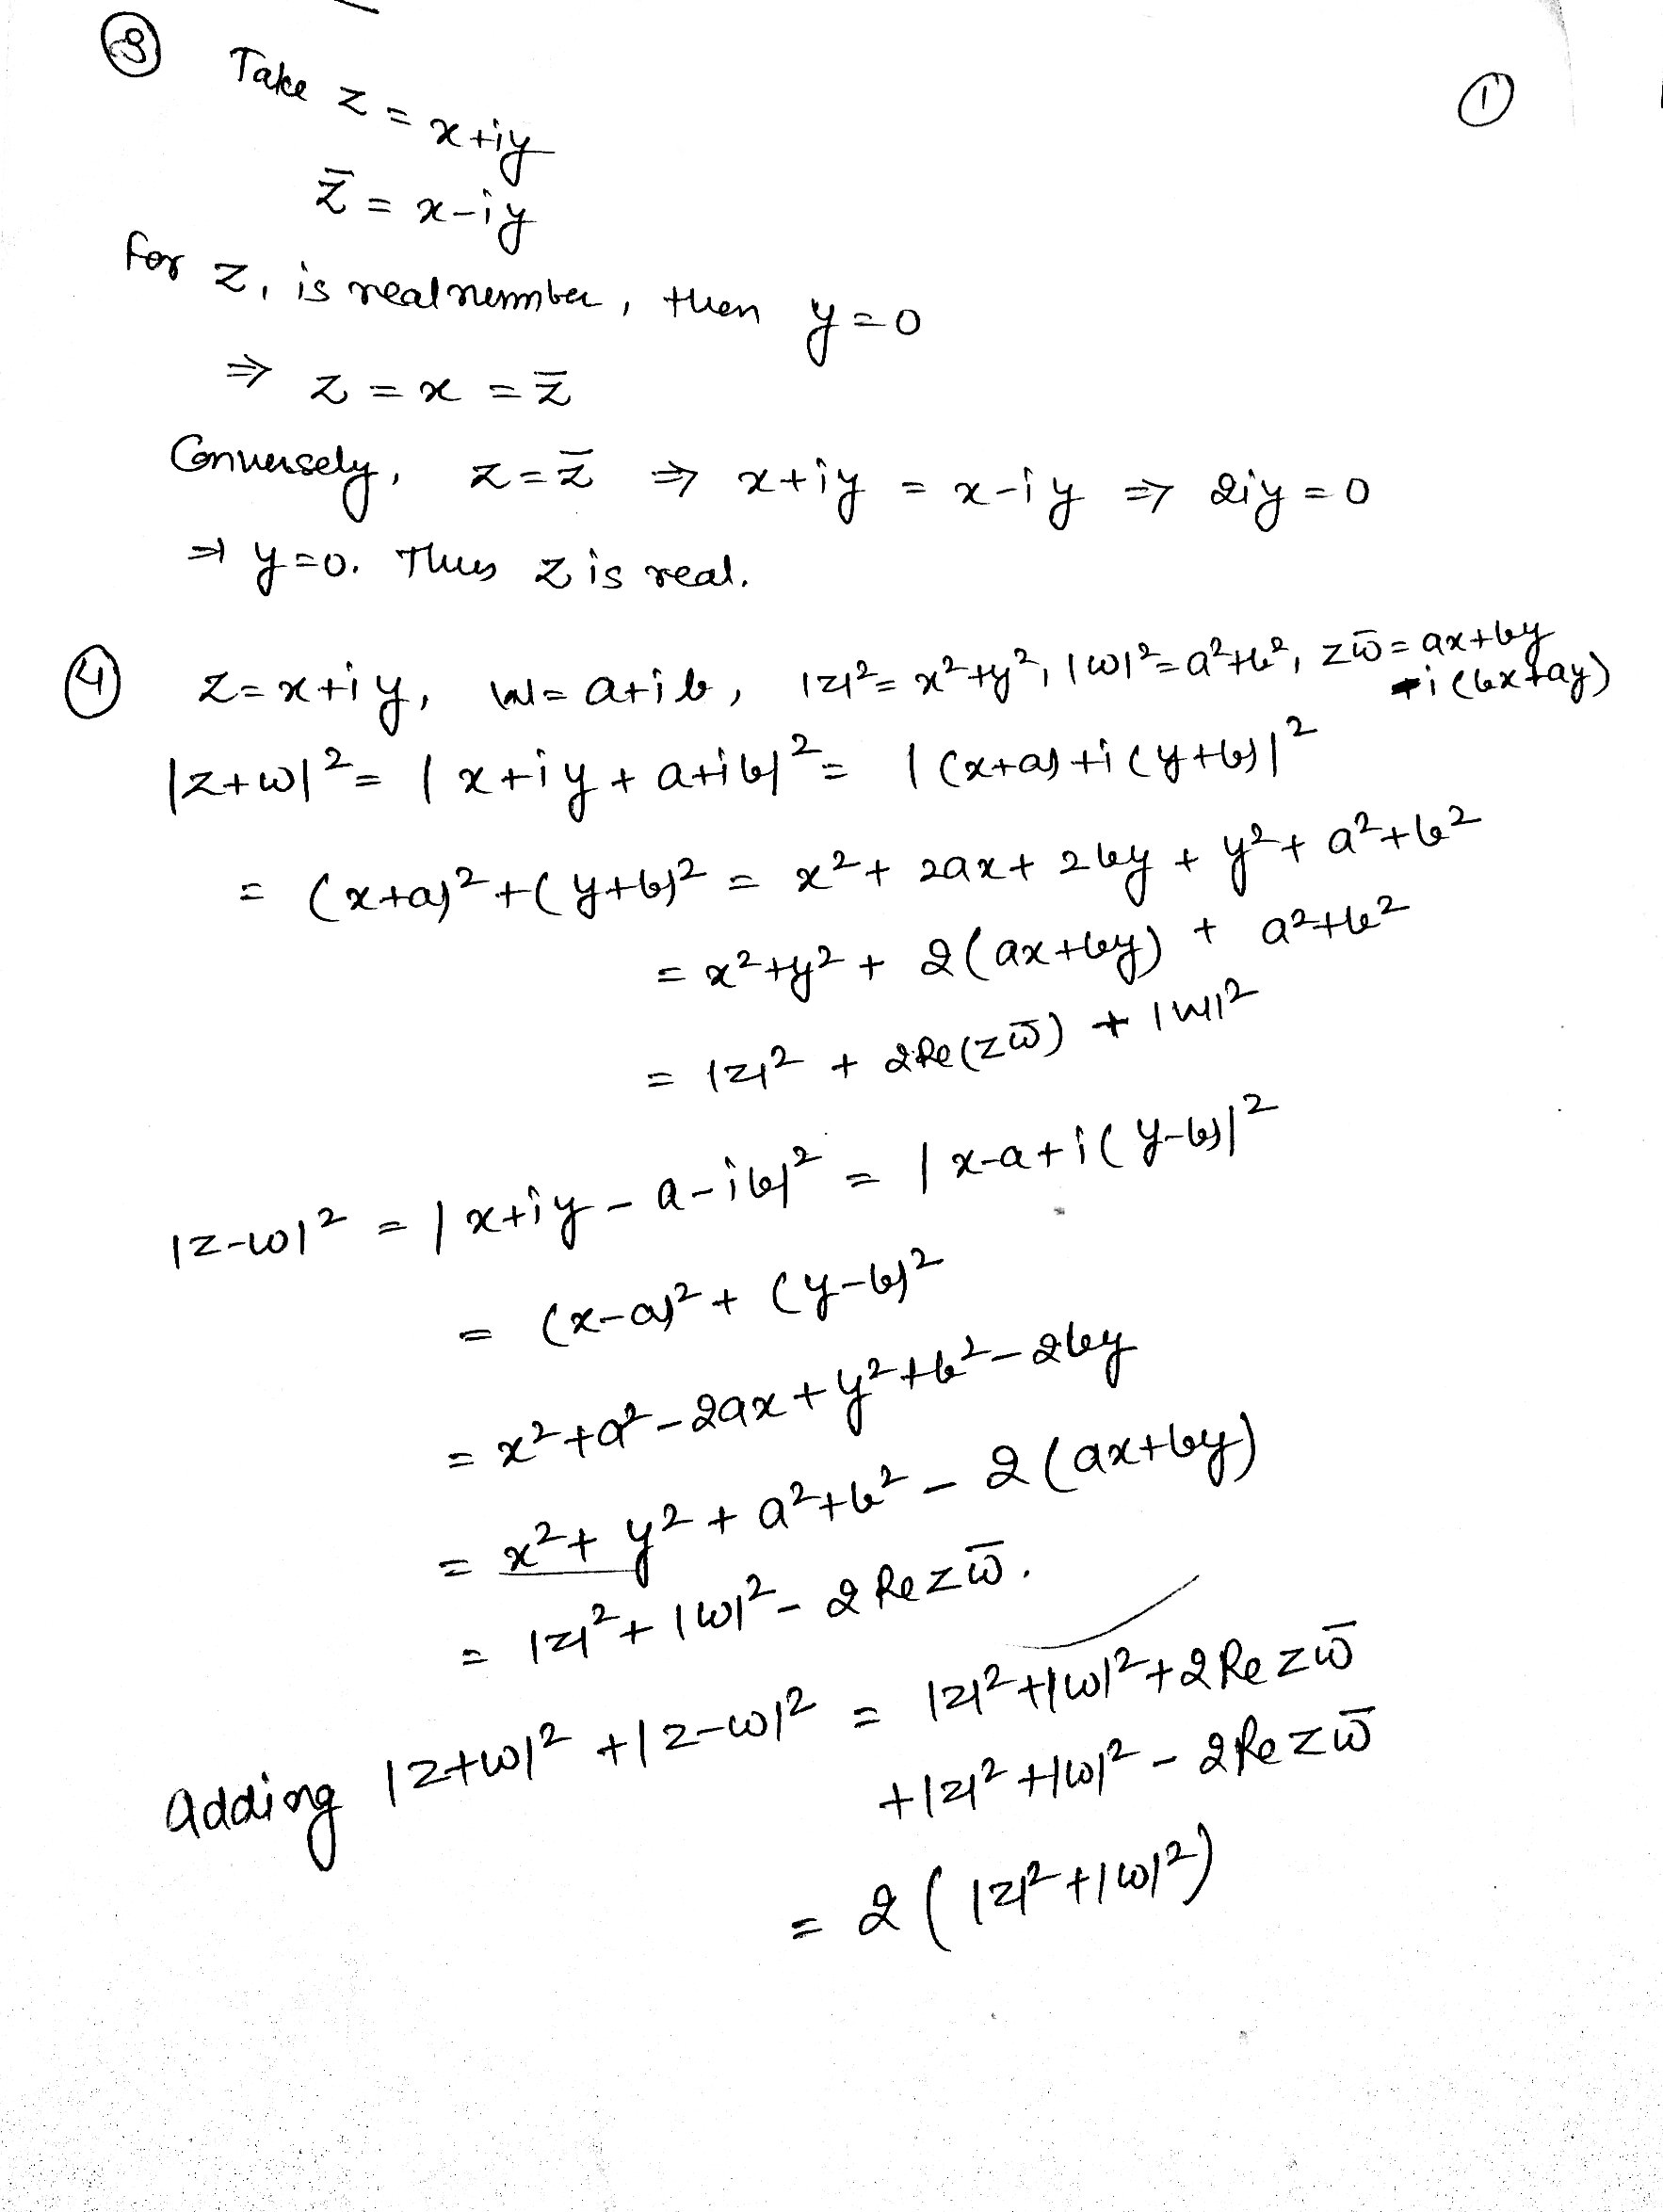 ③ Take z = x+iy
①
z̄ = x-iy
For z, is real number, then y=0
⇒ z = x = z̄
Conversely, z=z̄ ⇒ x+iy = x-iy ⇒ 2iy=0
⇒ y=0. Thus z is real.
④ z=x+iy, w=a+ib, |z|²=x²+y², |w|²=a²+b², zw̄=ax+by
+i(bx+ay)
|z+w|² = |x+iy+a+ib|² = |(x+a)+i(y+b)|²
= (x+a)²+(y+b)² = x²+2ax+2by+y²+a²+b²
= x²+y²+2(ax+by)+a²+b²
= |z|²+2Re(zw̄)+|w|²
|z-w|² = |x+iy-a-ib|² = |x-a+i(y-b)|²
= (x-a)²+(y-b)²
= x²+a²-2ax+y²+b²-2by
= x²+y²+a²+b²-2(ax+by)
= |z|²+|w|²-2Re zw̄.
adding |z+w|²+|z-w|² = |z|²+|w|²+2Re zw̄
+|z|²+|w|²-2Re zw̄
= 2(|z|²+|w|²)